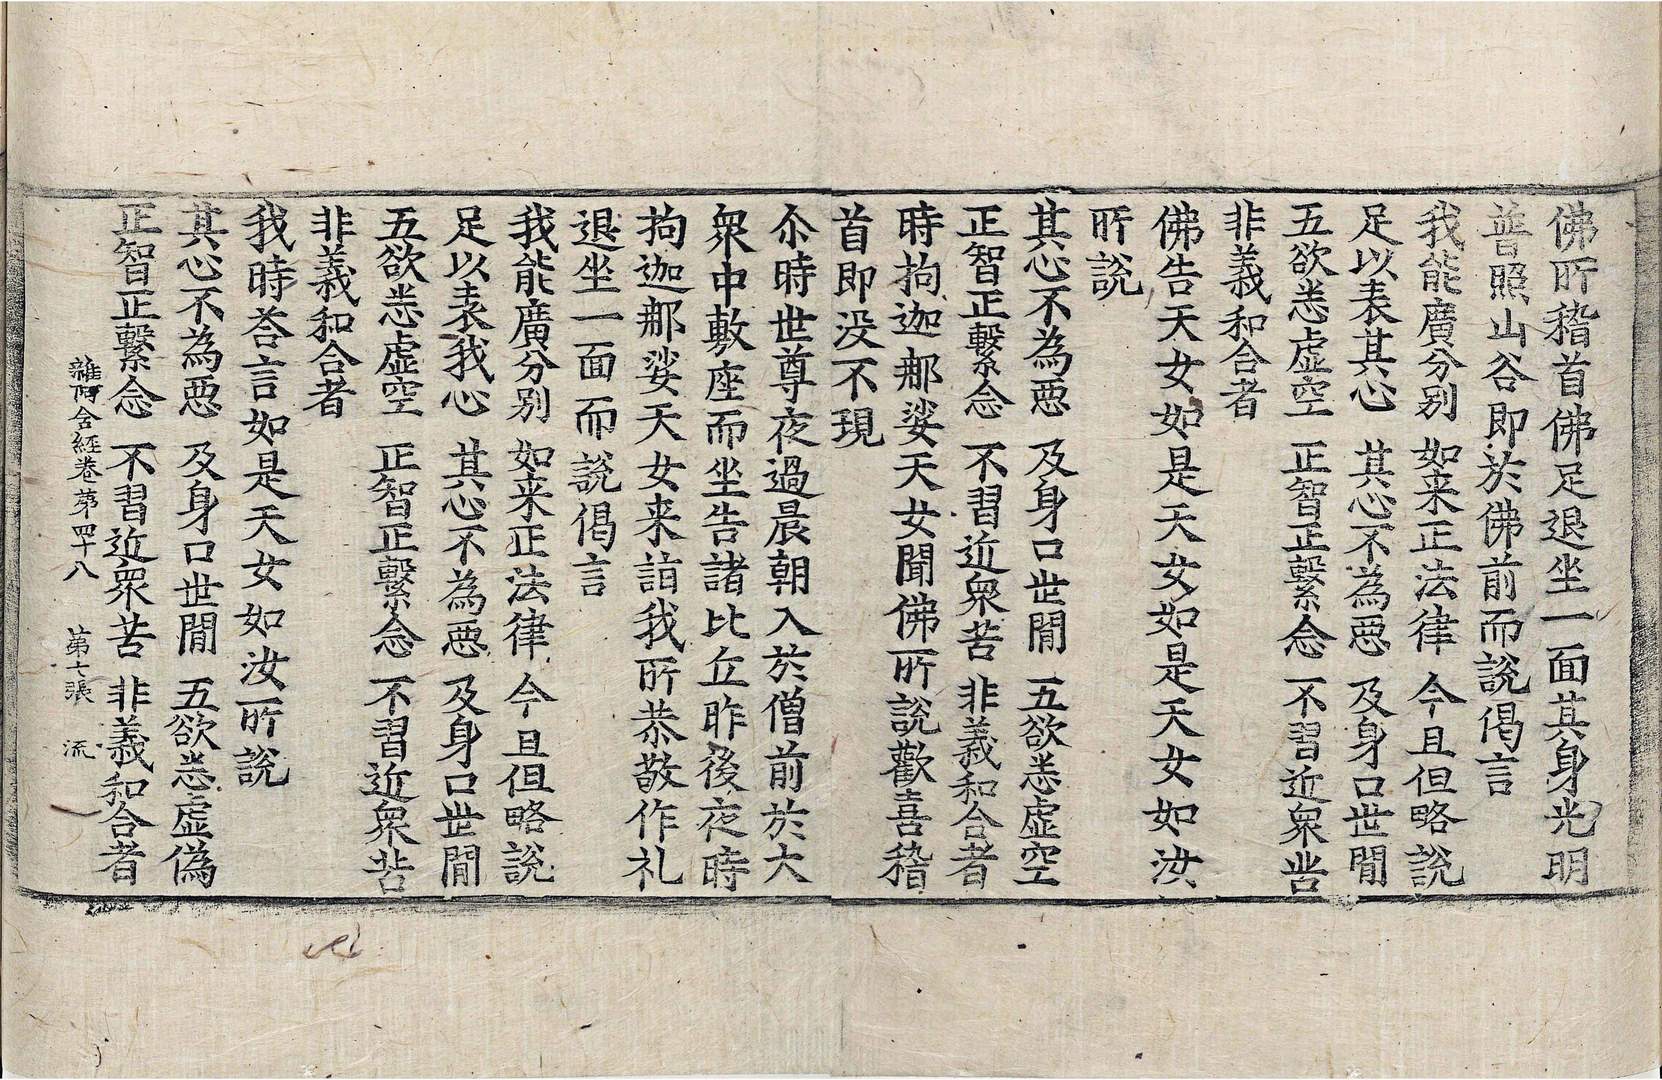 佛所稽首佛足退坐一面其身光明
普照山谷即於佛前而說偈言
我能廣分別　如来正法律　今且但略說
足以表其心　其心不為惡　及身口世閒
五欲悉虛空　正智正繫念　不習近衆苦
非義和合者
佛告天女如是天女如是天女如汝
所說
其心不為惡　及身口世閒　五欲悉虛空
正智正繫念　不習近衆苦　非義和合者
時拘迦那娑天女聞佛所說歡喜稽
首即没不現
尒時世尊夜過晨朝入於僧前於大
衆中敷座而坐告諸比丘昨後夜時
拘迦那娑天女来詣我所恭敬作礼
退坐一面而說偈言
我能廣分別　如来正法律　今且但略說
足以表我心　其心不為惡　及身口世閒
五欲悉虛空　正智正繫念　不習近衆苦
非義和合者
我時荅言如是天女如汝所說
其心不為惡　及身口世閒　五欲悉虛偽
正智正繫念　不習近衆苦　非義和合者
雜阿含經卷第四十八　第七張　流